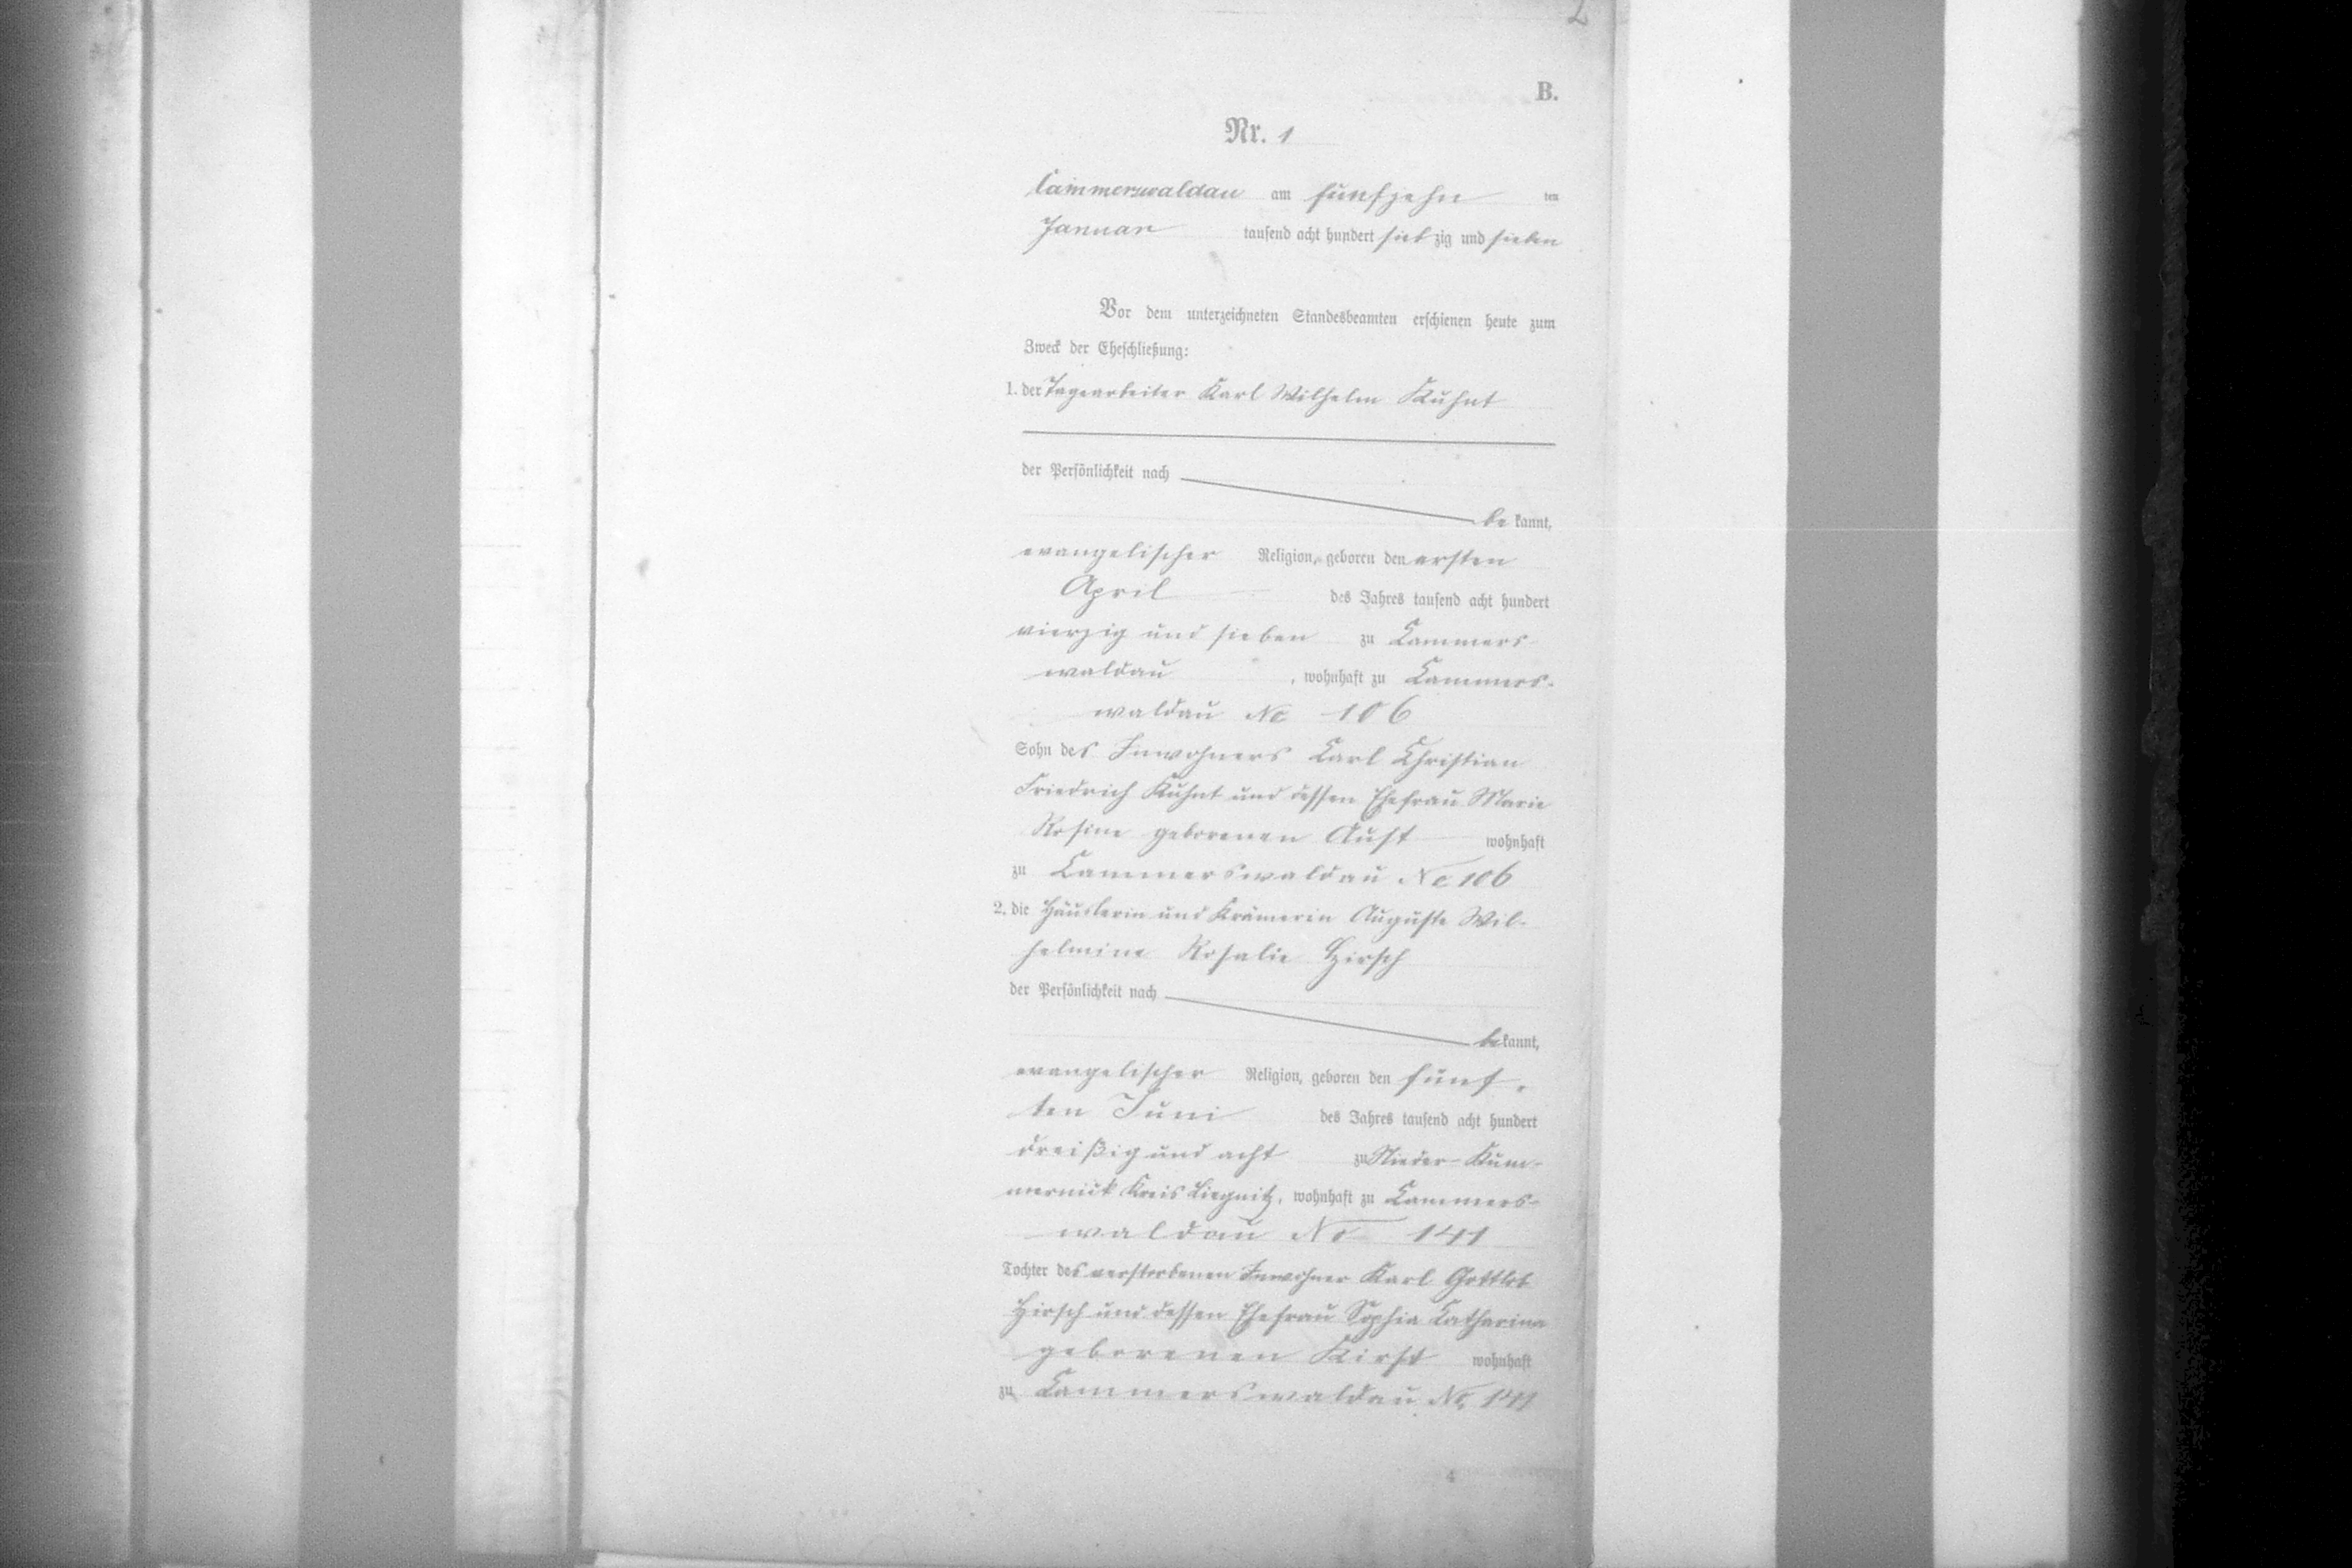 2
B.
Nr. 1
Cammerswaldau am fünfzehn ten
Januar tausend acht hundert sieb zig und sieben
Vor dem unterzeichneten Standesbeamten erschienen heute zum
Zweck der Eheschließung:
1. der Tagearbeiter Karl Wilhelm Kuhnt
der Persönlichkeit nach
be kannt,
evangelischer Religion, geboren den ersten
April des Jahres tausend acht hundert
vierzig und sieben zu Cammers
waldau , wohnhaft zu Cammers-
waldau No 106
Sohn des Inwohners Carl Christian
Friedrich Kuhnt und dessen Ehefrau Marie
Rosine geborenen Aust wohnhaft
zu Cammerswaldau No 106
2. die Häuslerin und Krämerin Auguste Wil-
helmine Rosalie Hirsch
der Persönlichkeit nach
be kannt,
evangelischer Religion, geboren den fünf-
ten Juni des Jahres tausend acht hundert
dreißig und acht zu Nieder-Kum-
mernick Kreis Liegnitz, wohnhaft zu Cammers-
waldau No 141
Tochter des verstorbenen Inwohner Karl Gottlob
Hirsch und dessen Ehefrau Sophia Catharina
geborenen Kirst wohnhaft
zu Cammerswaldau No 141
4